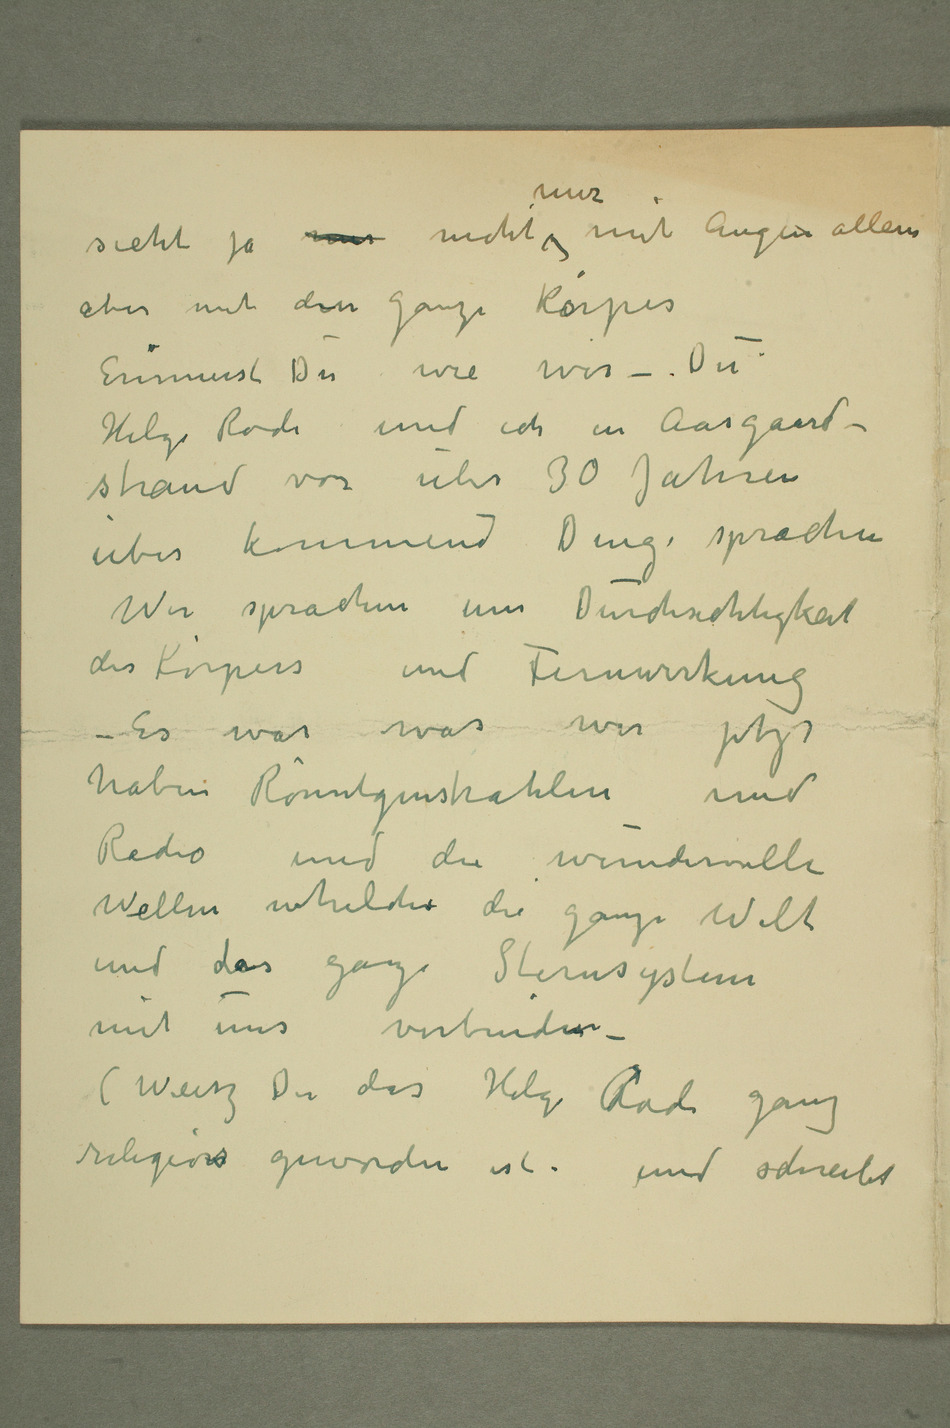 nur
sieht ja nur nicht mit Augen allein
aber mit den ganze Körper
Erinnerst Du wie wir – Du
Helge Rode und ich in Aasgaard-
strand vor über 30 Jahren
über kommend Dinge sprachen
Wir sprachen um Durchsichtigkeit
des Körpers und Fernwirkung
– Es war was wir jetzt
haben Rönntgenstrahlen und
Radio und die wundervolle
Wellen die ganze Welt
und das ganze Sternsystem
mit uns verbinden –
(Weitz Du das Helge Rode ganz
religiös geworden ist. und schreibt